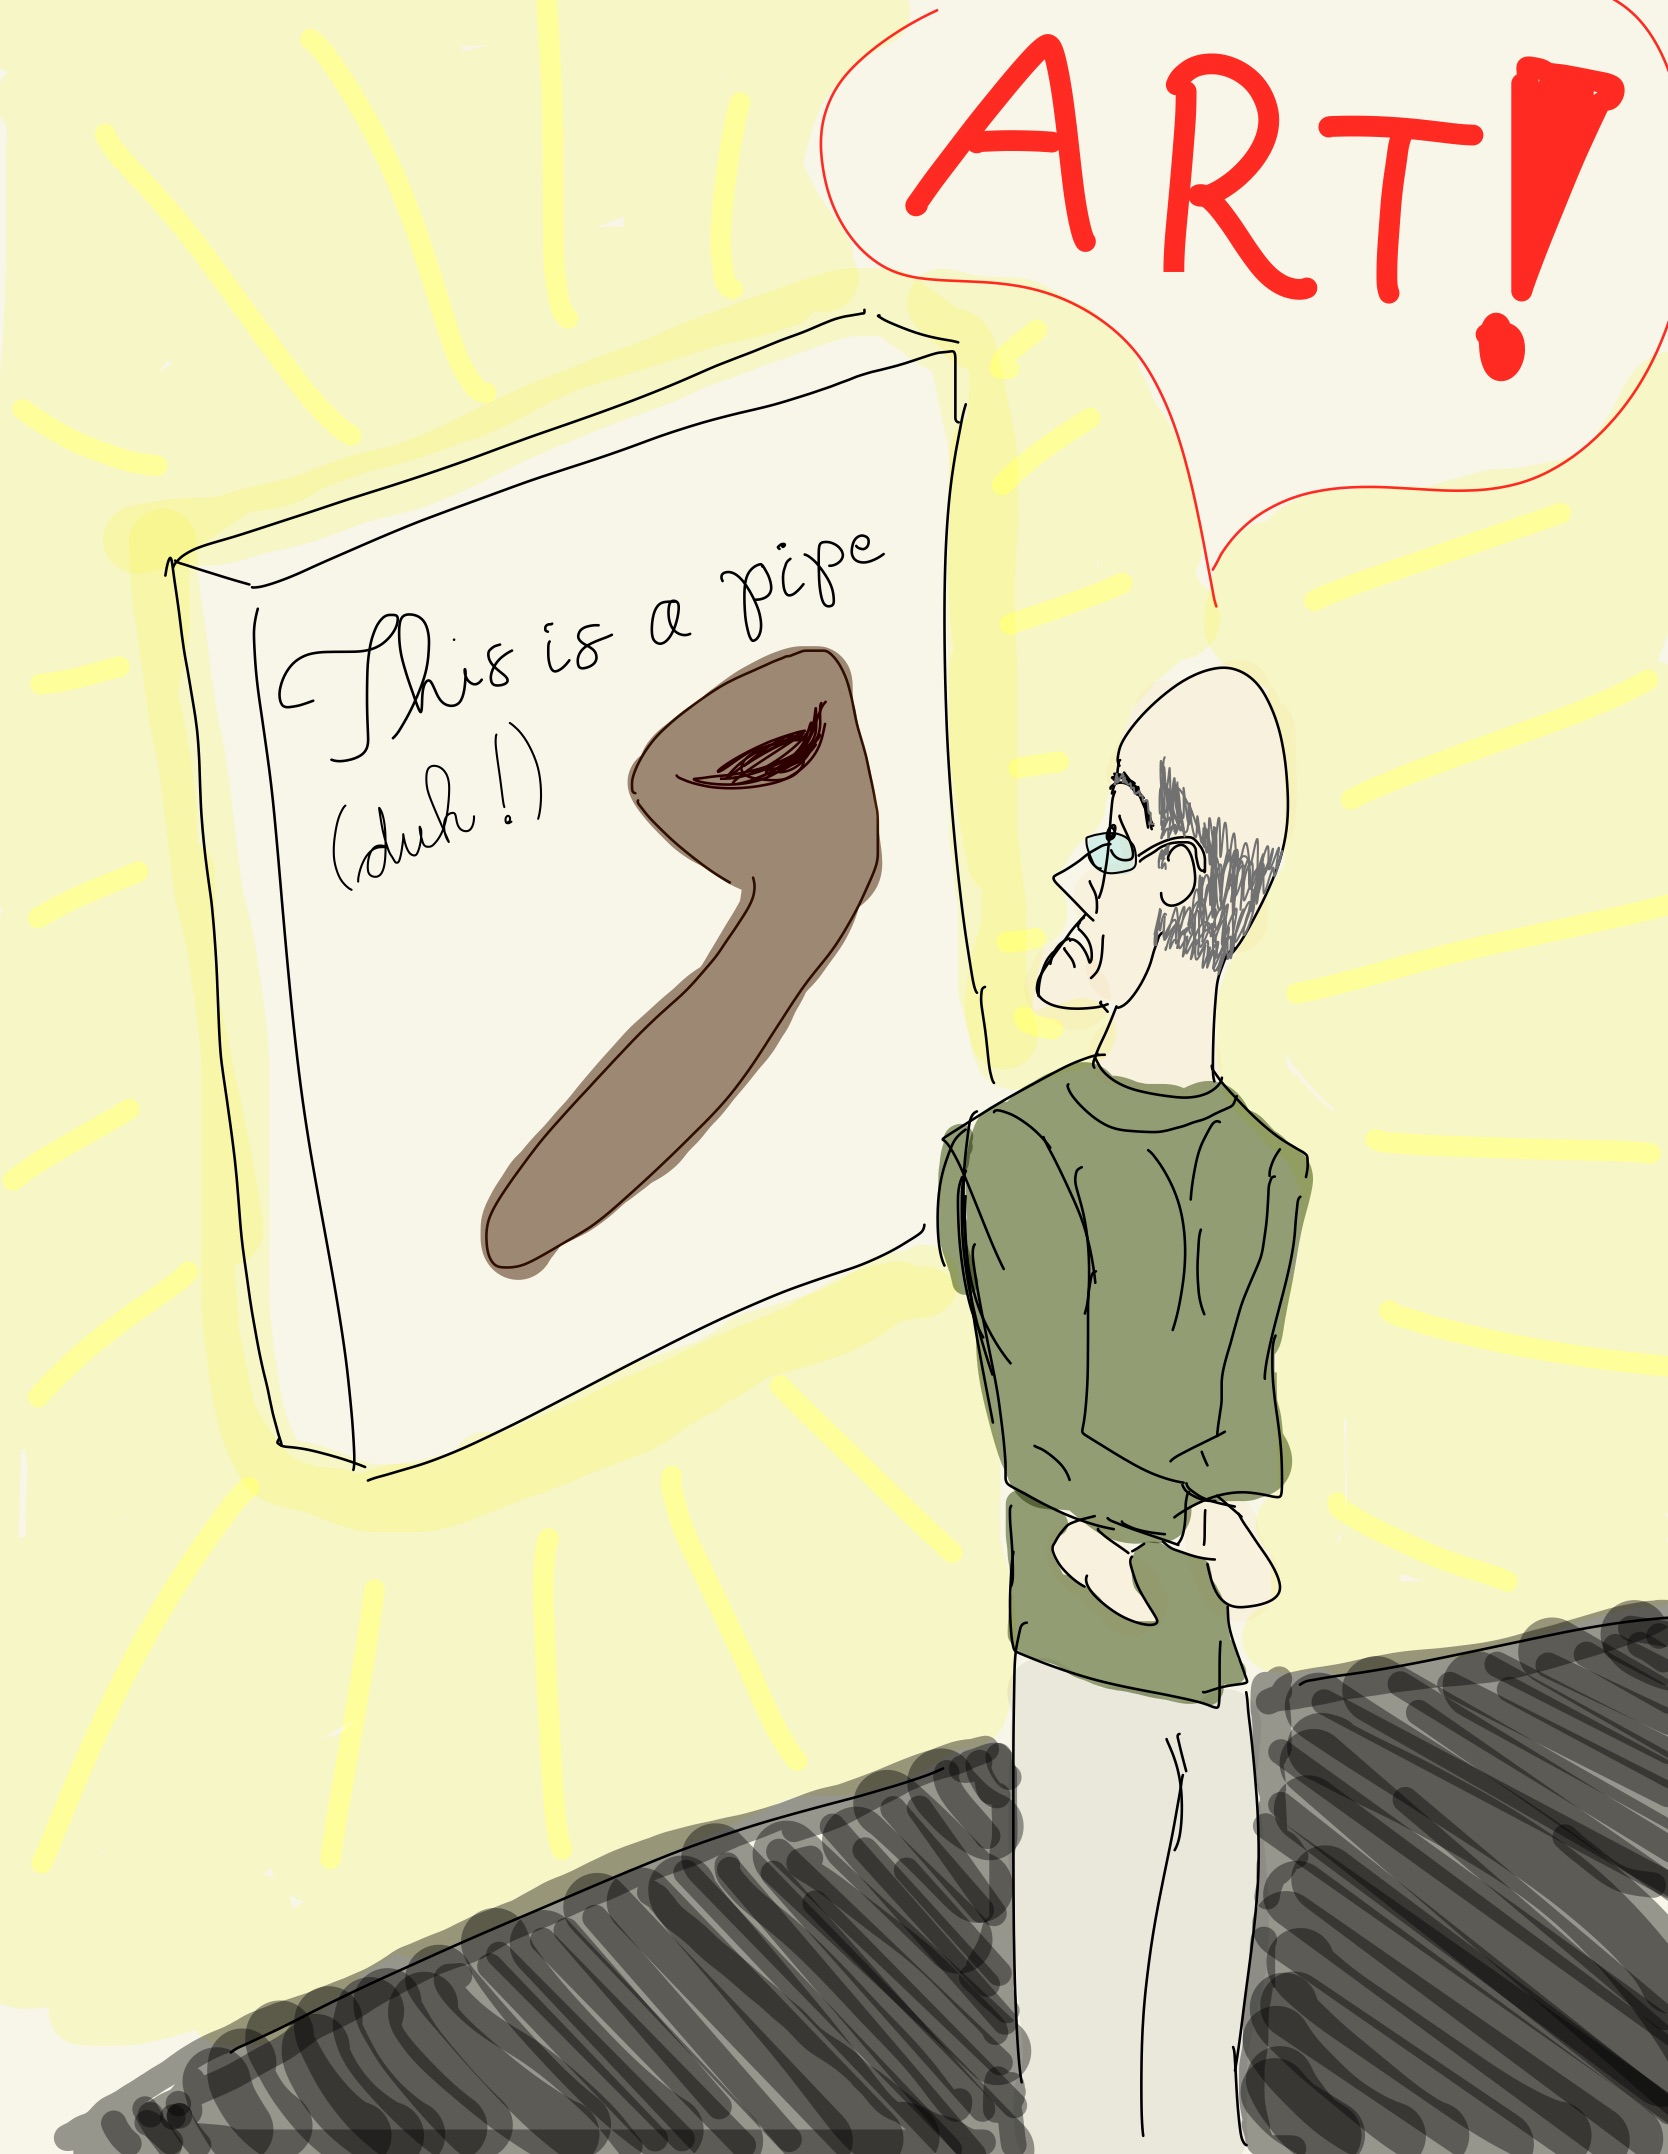 ART!
This is a pipe
(duh!)